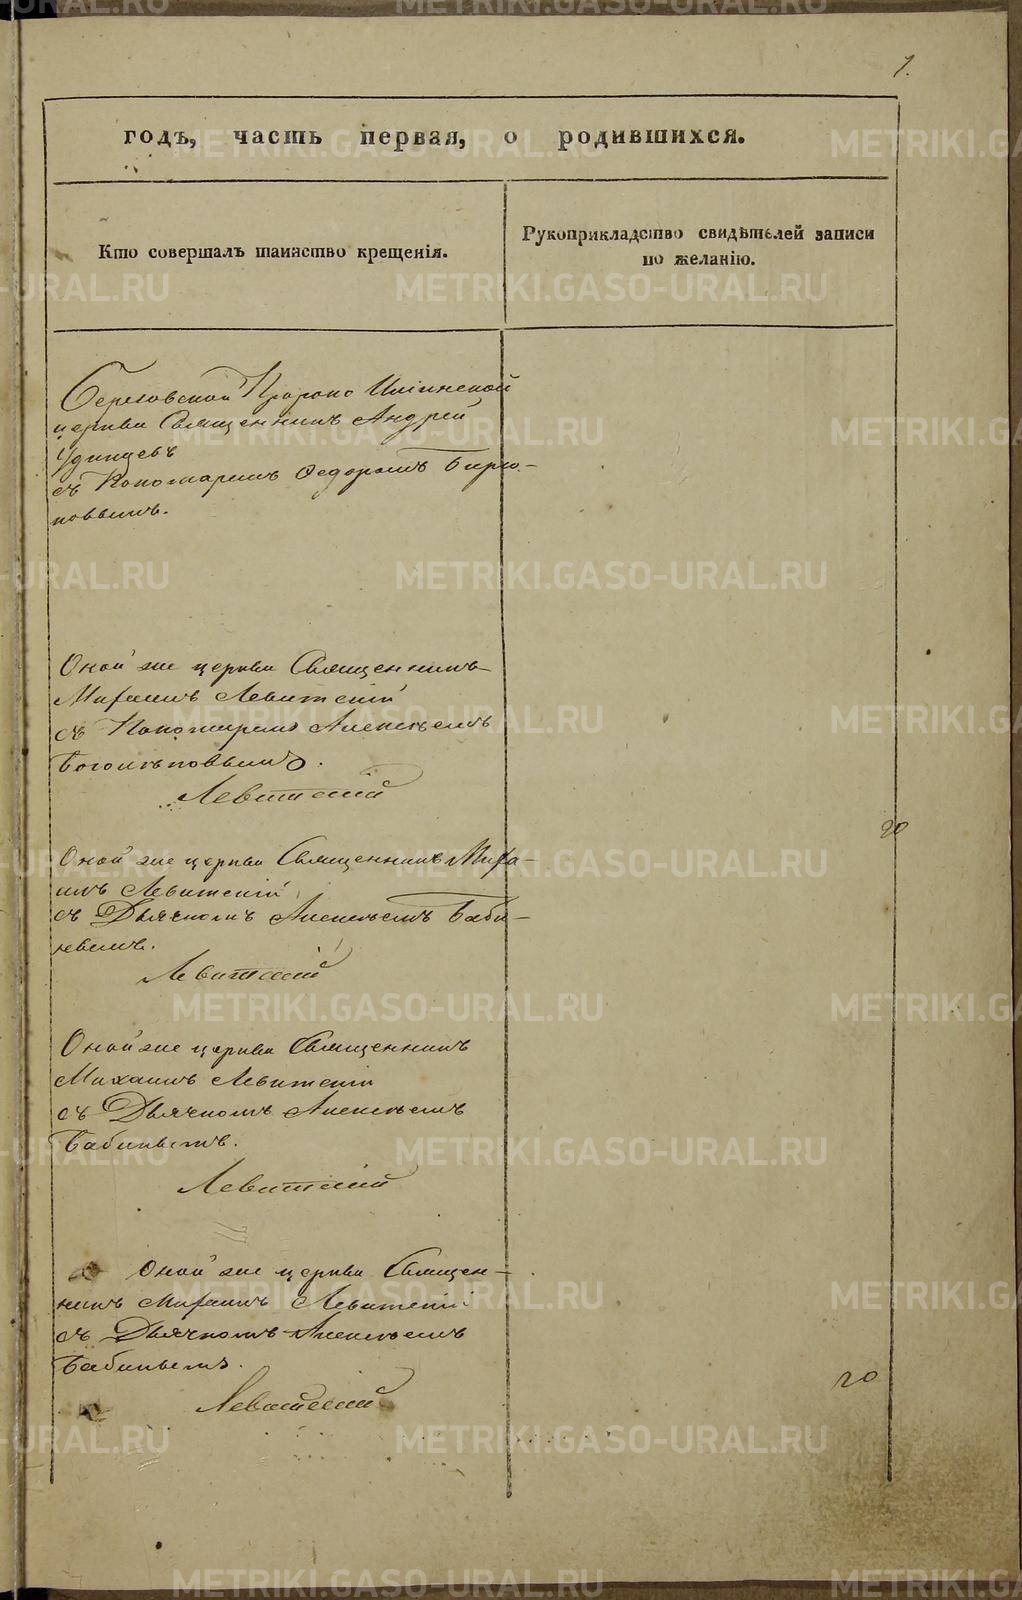 1.
годъ, часть первая, о родившихся.
Кто совершалъ таинство крещенія.
Рукоприкладство свидѣтелей записи
по желанію.
Березовской Пророко Илiинской
церкви Священникъ Андрей
Удинцевъ
съ Пономаремъ Ѳедоромъ Бирю-
ковымъ.
Оной же церкви Священникъ
Михаилъ Левитскій
съ Пономаремъ Алексѣемъ
Боголѣповымъ.
Левитскій
20
Оной же церкви Священникъ Миха-
илъ Левитскій
съ Дьячкомъ Алексѣемъ Баби-
невымъ.
Левитскій
Оной же церкви Священникъ
Михаилъ Левитскій
съ Дьячкомъ Алексѣемъ
Левитскій
Оной же церкви Священ-
никъ Михаилъ Левитскій
съ Дьячкомъ Алексѣемъ
20
Левитскій
METRIKI.GASO-URAL.RU